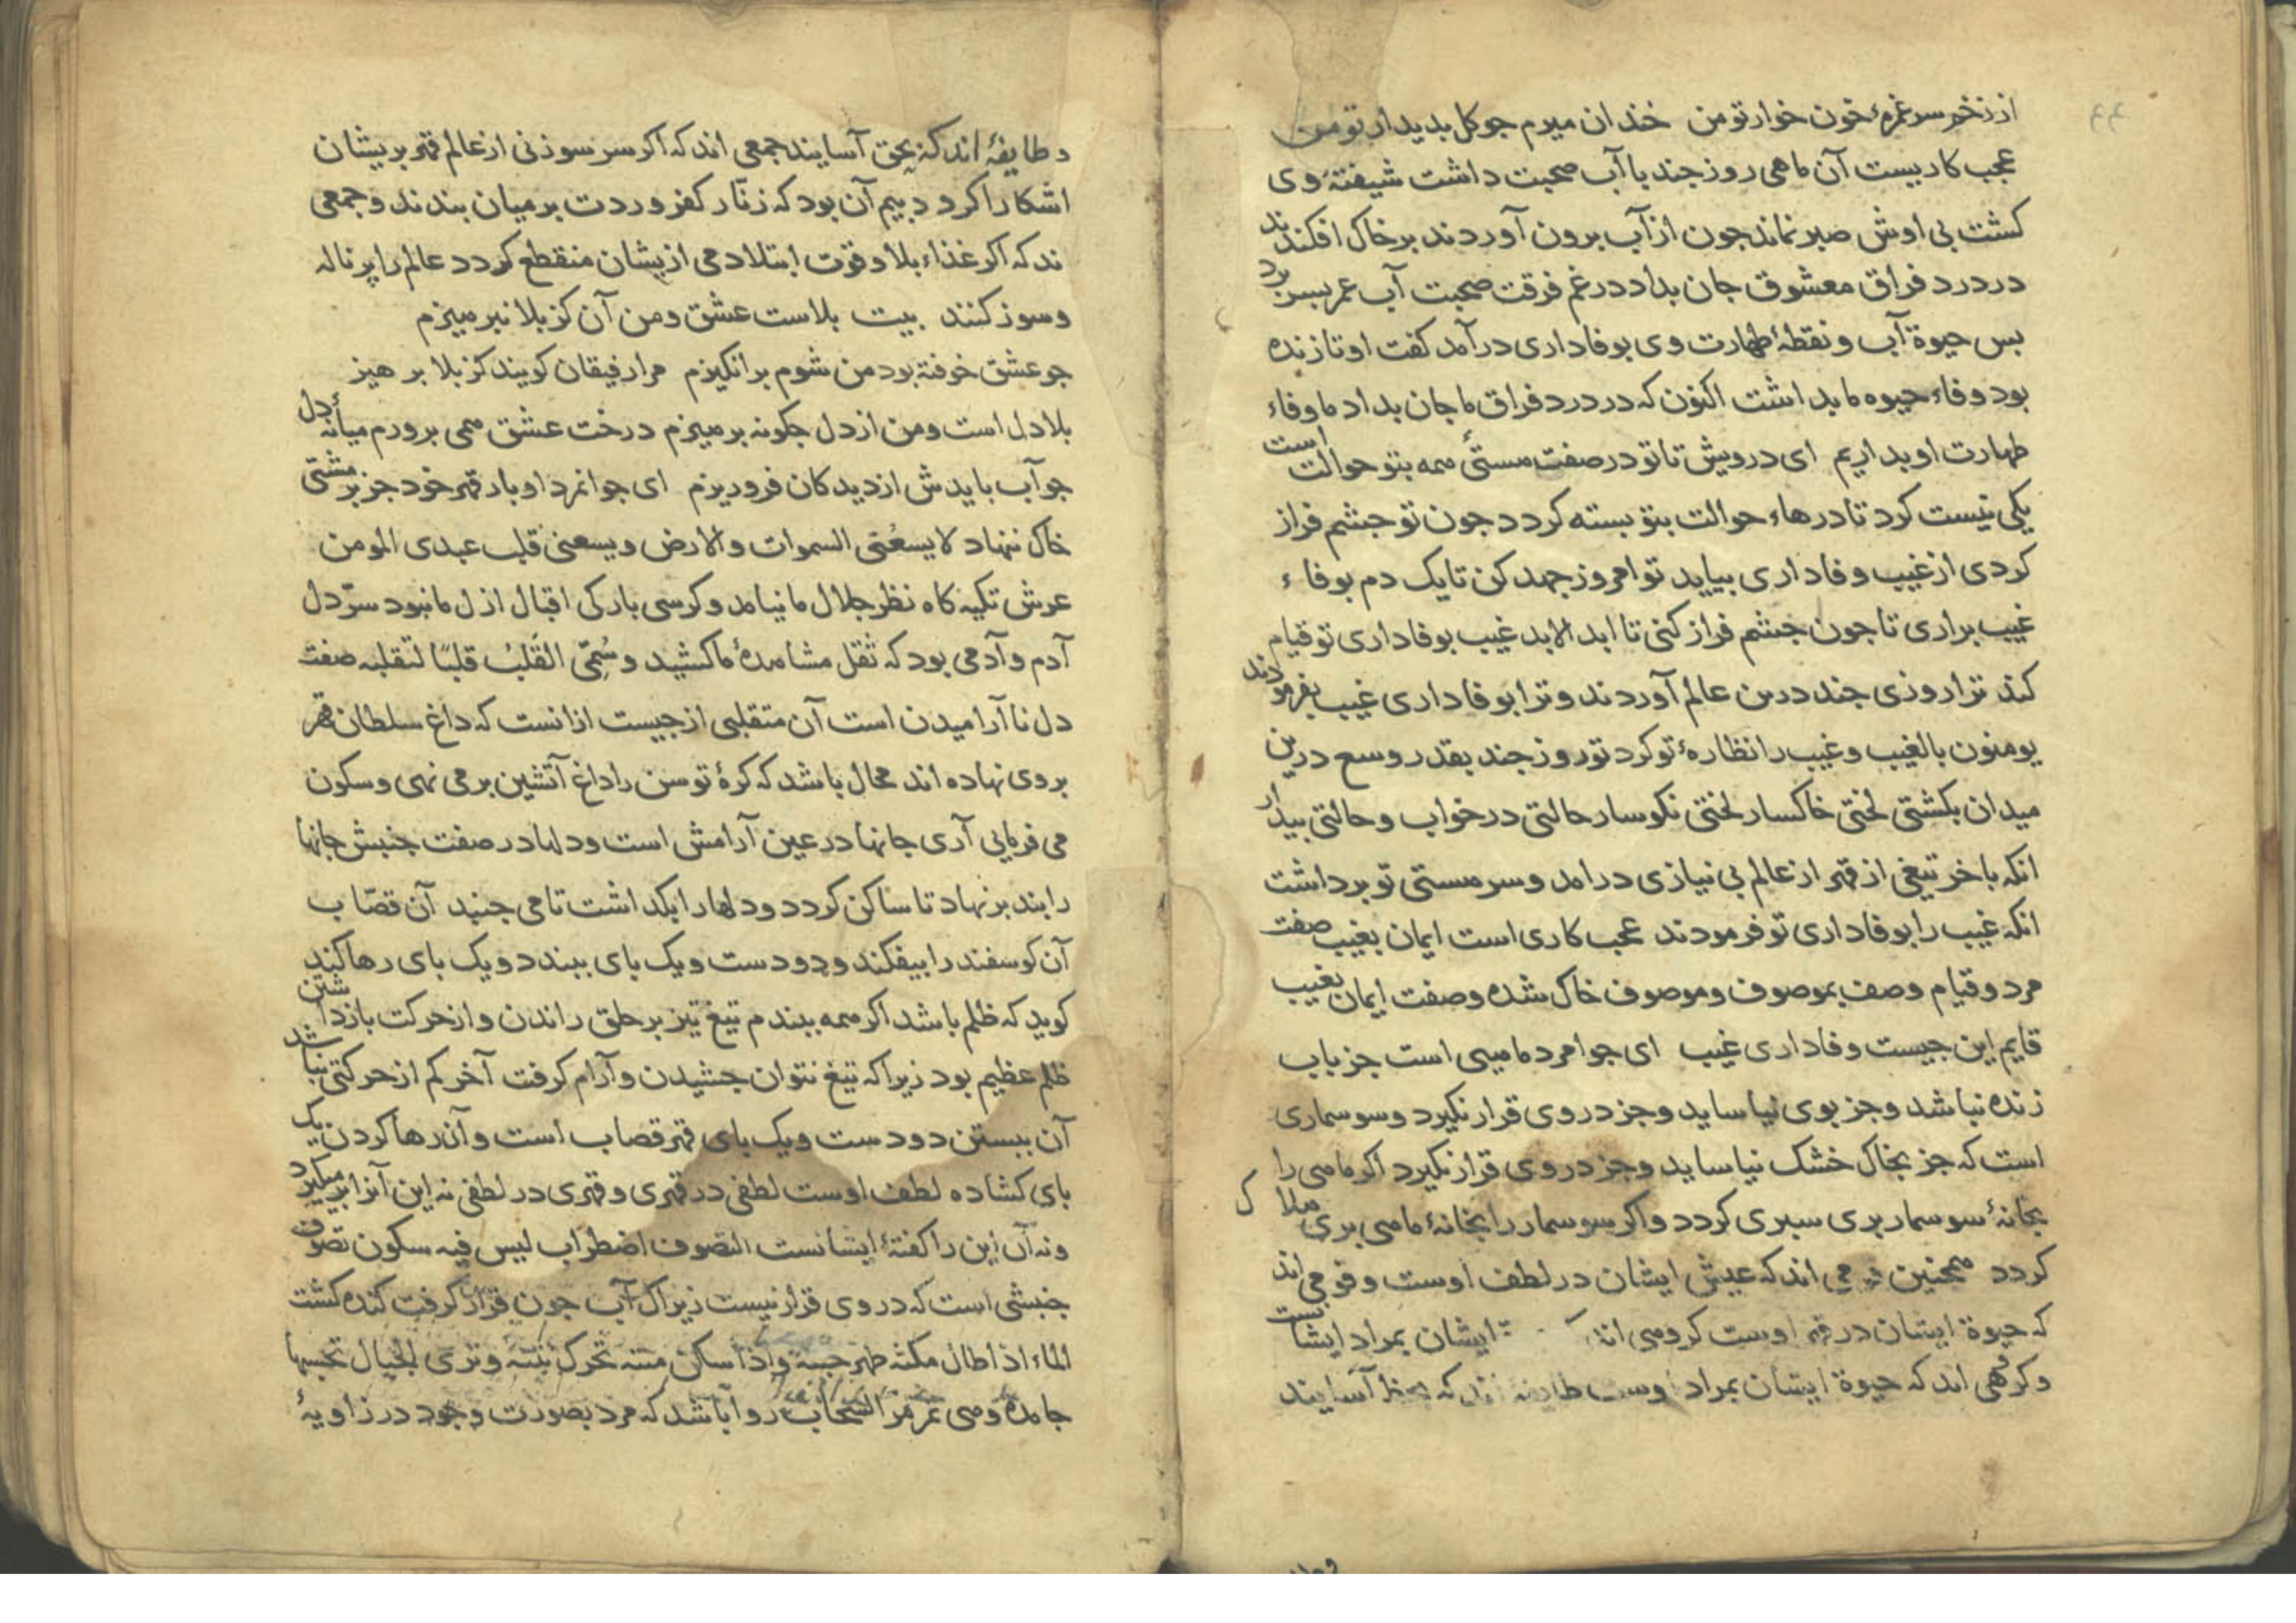 ۴۴
از زخم سر غمزهٔ خون خوار تو من خندان میرم جو کل بدیدار تو من
عجب کاریست آن ماهی روز جند با آب صحبت داشت شیفتهٔ وی
کشت بی اوش صبر نماند جون از آب برون آوردند بر خاک افکندند
در درد فراق معشوق جان بداد در غم فرقت صحبت آب عمر بسر برد
بس حیوة آب و نقطهٔ طهارت وی بوفاداری درآمد کفت او تا زنده
بود وفاء حیوه ما بداشت اکنون که در درد فراق ما جان بداد ما وفاء
طهارت او بداریم ای درویش تا تو در صفت مستیٔ همه بتو حوالت است
یکی نیست کرد تا درهاء حوالت بتو بسته کردد جون تو جشم فراز
کردی از غیب وفاداری بیاید تو امروز جهد کن تا یک دم بوفاء
غیب براری تا جون جشم فراز کنی تا ابد الابد غیب بوفاداری تو قیام
کند ترا روزی جند درین عالم آوردند و ترا بوفاداری غیب بفرمودند
یومنون بالغیب و غیب را نظارهٔ تو کرد تو روز جند بقدر وسع درین
میدان بکشتی لختی خاکسار لختی نکوسار حالتی در خواب و حالتی بیدار
انکه باخر تیغی از قهر از عالم بی نیازی درامد و سر مستی تو برداشت
انکه غیب را بوفاداری تو فرمودند عجب کاری است ایمان بغیب صفت
مرد و قیام وصف بموصوف و موصوف خاک شده و صفت ایمان بغیب
قایم این جیست وفاداری غیب ای جوامرد ماهیی است جز باب
زنده نباشد و جز بوی نیاساید و جز در وی قرار نکیرد و سوسماری
است که جز بخاک خشک نیاساید و جز در وی قرار نکیرد اکر ماهی را
بخانهٔ سوسمار بری سبری کردد و اکر سوسمار را بخانهٔ ماهی بری هلاک
کردد همجنین اند که عیش ایشان در لطف اوست و قومی اند
که حیوة ایشان در قهر اوست کروهی اند ایشان بمراد ایشانست
و کروهی اند که حیوة ایشان بمراد اوست طایفهٔ اند که بحظ آسایند
و طایفهٔ اند که بحق آسایند جمعی اند که اکر سر سوزنی از عالم قهر بریشان
اشکارا کردد بیم آن بود که زنّار کفر و ردت بر میان بندند و جمعی
ند که اکر غذاء بلا و قوت ابتلا دمی ازیشان منقطع کردد عالم را پر ناله
و سوز کنند بیت بلاست عشق و من آن کز بلا نبرهیزم
جو عشق خوفته بود من شوم برانکیزم مرا رفیقان کویند کز بلا برهیز
بلا دل است و من از دل جکونه برهیزم درخت عشق همی برورم میانهٔ دل
جو آب بایدش از دیدکان فرو ریزم ای جوانمرد او بار قهر خود جز بر مشتی
خاک ننهاد لا یسعنی السموات والارض ویسعنی قلب عبدی المومن
عرش تکیه کاه نظر جلال ما نیامد و کرسی بارکی اقبال ازل ما نبود سرّ دل
آدم و آدمی بود که ثقل مشاهدهٔ ما کشید و سُمّی القَلبُ قلبًا لتقلبه صفت
دل نا آرامیدن است آن متقلبی از جیست ازانست که داغ سلطان قهر
بروی نهاده اند محال باشد که کرهٔ توسن را داغ آتشین بر می نهی و سکون
می فرمایی آری جانها در عین آرامش است و دلها در صفت جنبش جانها
را بند بر نهاد تا ساکن کردد و دلها را بکداشت تا می جنبد آن قصّاب
آن کوسفند را بیفکند و دو دست و یک بای ببندد و یک بای رها کند
کوید که ظلم باشد اکر همه ببندم تیغ تیز بر حلق راندن و از حرکت بازداشتن
ظلم عظیم بود زیرا که تیغ نتوان جشیدن و آرام کرفت آخر کم از حرکتی نباشد
آن ببستن دو دست و یک بای قهر قصاب است و آن رها کردن یک
بای کشاده لطف اوست لطفی در قهری و قهری در لطفی نه این آنرا برمیکیرد
و نه آن این را کفتهٔ ایشانست التصوف اضطراب لیس فیه سکون تصوف
جنبشی است که در وی قرار نیست زیراک آب جون قرار کرفت کنده کشت
الماء اذا طال مکثه ظهر خبثه و اذا سکن متنه تحرک نتنه وتری الجبال تحسبها
جامده وهی تمر مر السحاب روا باشد که مرد بصورت وجود در زاویهٔ